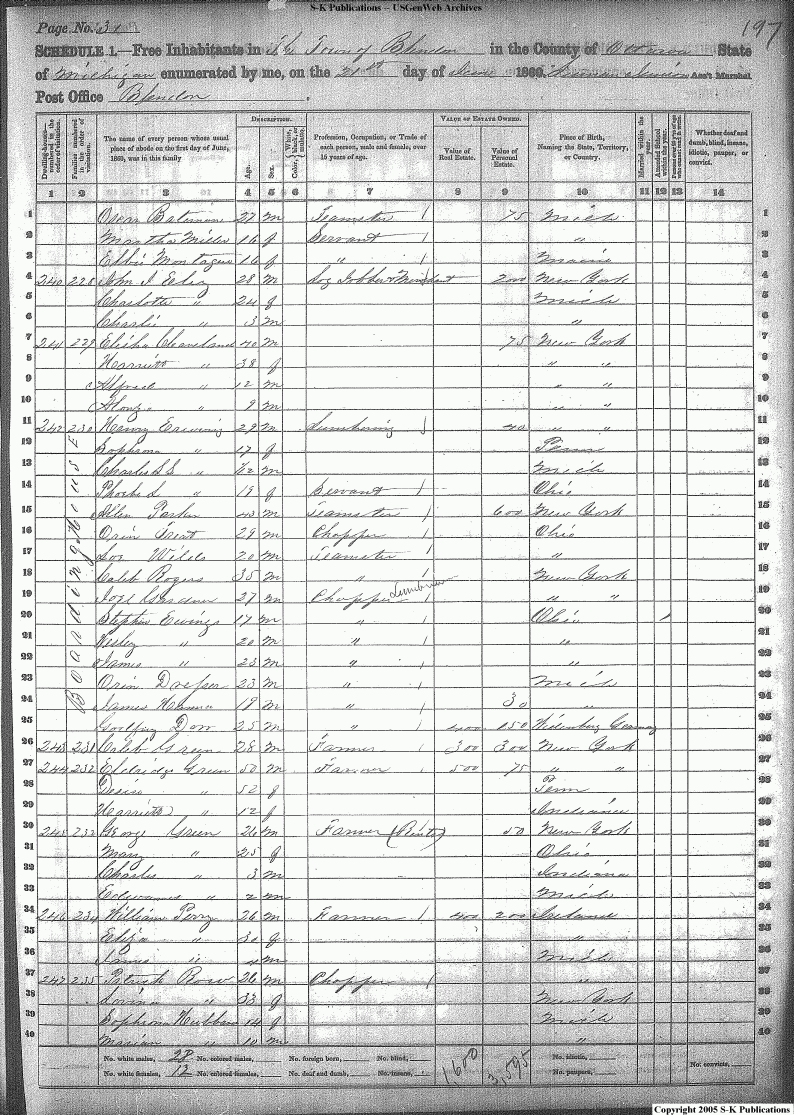 S-K Publications -- USGenWeb Archives
Page No. 31
197
SCHEDULE 1.—Free Inhabitants in The Town of Blendon in the County of Ottawa State
of Michigan enumerated by me, on the 21st day of June 1860. Ass't Marshal
Post Office Blendon.
Dwelling-houses numbered in the order of visitation.
Families numbered in the order of visitation.
The name of every person whose usual place of abode on the first day of June, 1860, was in this family
DESCRIPTION.
Age.
Sex.
Color, {White, black, or mulatto.
Profession, Occupation, or Trade of each person, male and female, over 15 years of age.
VALUE OF ESTATE OWNED.
Value of Real Estate.
Value of Personal Estate.
Place of Birth, Naming the State, Territory, or Country.
Married within the year.
Attended School within the year.
Persons over 20 y'rs of age who cannot read & write.
Whether deaf and dumb, blind, insane, idiotic, pauper, or convict.
1 2 3 4 5 6 7 8 9 10 11 12 13 14
1 Oscar Bateman 27 m Teamster / 75 Mich 1
2 Martha Miller 16 f Servant / " 2
3 Montague 16 f " / Maine 3
4 240 228 John J 28 m Log Jobber & Merchant 200 New York 4
5 Charlotte " 24 f Mich 5
6 Charlie " 3 m " 6
7 241 229 Elisha Cleaveland 40 m 75 New York 7
8 Harriett " 38 f " " 8
9 Alfred " 12 m " " 9
10 Alonzo " 9 m " " 10
11 242 230 Henry 29 m Lumbering 40 " " 11
Boarding House
12 Sophrona " 17 f Penn 12
13 Charles " m Mich 13
14 Phoebe L " 19 f Servant / Ohio 14
15 Allen Parker 43 m Teamster / 600 New York 15
16 Orin Trent 29 m Chopper / Ohio 16
17 Wilds 20 m Teamster / " 17
18 Caleb Rogers 35 m " / New York 18
19 Gardner 27 m Chopper Lumberman / " " 19
20 Stephen Ewings 17 m " / Ohio / 20
21 Wesley " 20 m " / " 21
22 James " 23 m " / " 22
23 Orin 23 m " / Mich 23
24 James Hanna 19 m " / 30 " 24
25 Godfrey Dorr 25 m " / 400 150 Germany 25
26 243 231 Caleb Green 28 m Farmer / 300 300 New York 26
27 244 232 Green 50 m Farmer / 500 75 " " 27
28 " 52 f Penn 28
29 Harriett " 12 f Indiana 29
30 245 George Green 26 m Farmer (Rents) 50 New York 30
31 Mary " 25 f Ohio 31
32 Charles " 3 m Indiana 32
33 " 2 m Mich 33
34 246 234 William Perry 26 m Farmer / 400 200 Ireland 34
35 Eliza " 30 f " 35
36 James " 4 m Mich 36
37 247 235 Patrick Rose 26 m Chopper / " 37
38 Lovina " 33 f New York 38
39 Sophrona Hubbard 14 f Mich 39
40 Marian " 10 m " 40
No. white males, 28 No. colored males, No. foreign born, No. blind, No. idiotic, No. convicts,
No. white females, 12 No. colored females, No. deaf and dumb, No. insane, 1,600 3,595 No. paupers,
Copyright 2005 S-K Publications